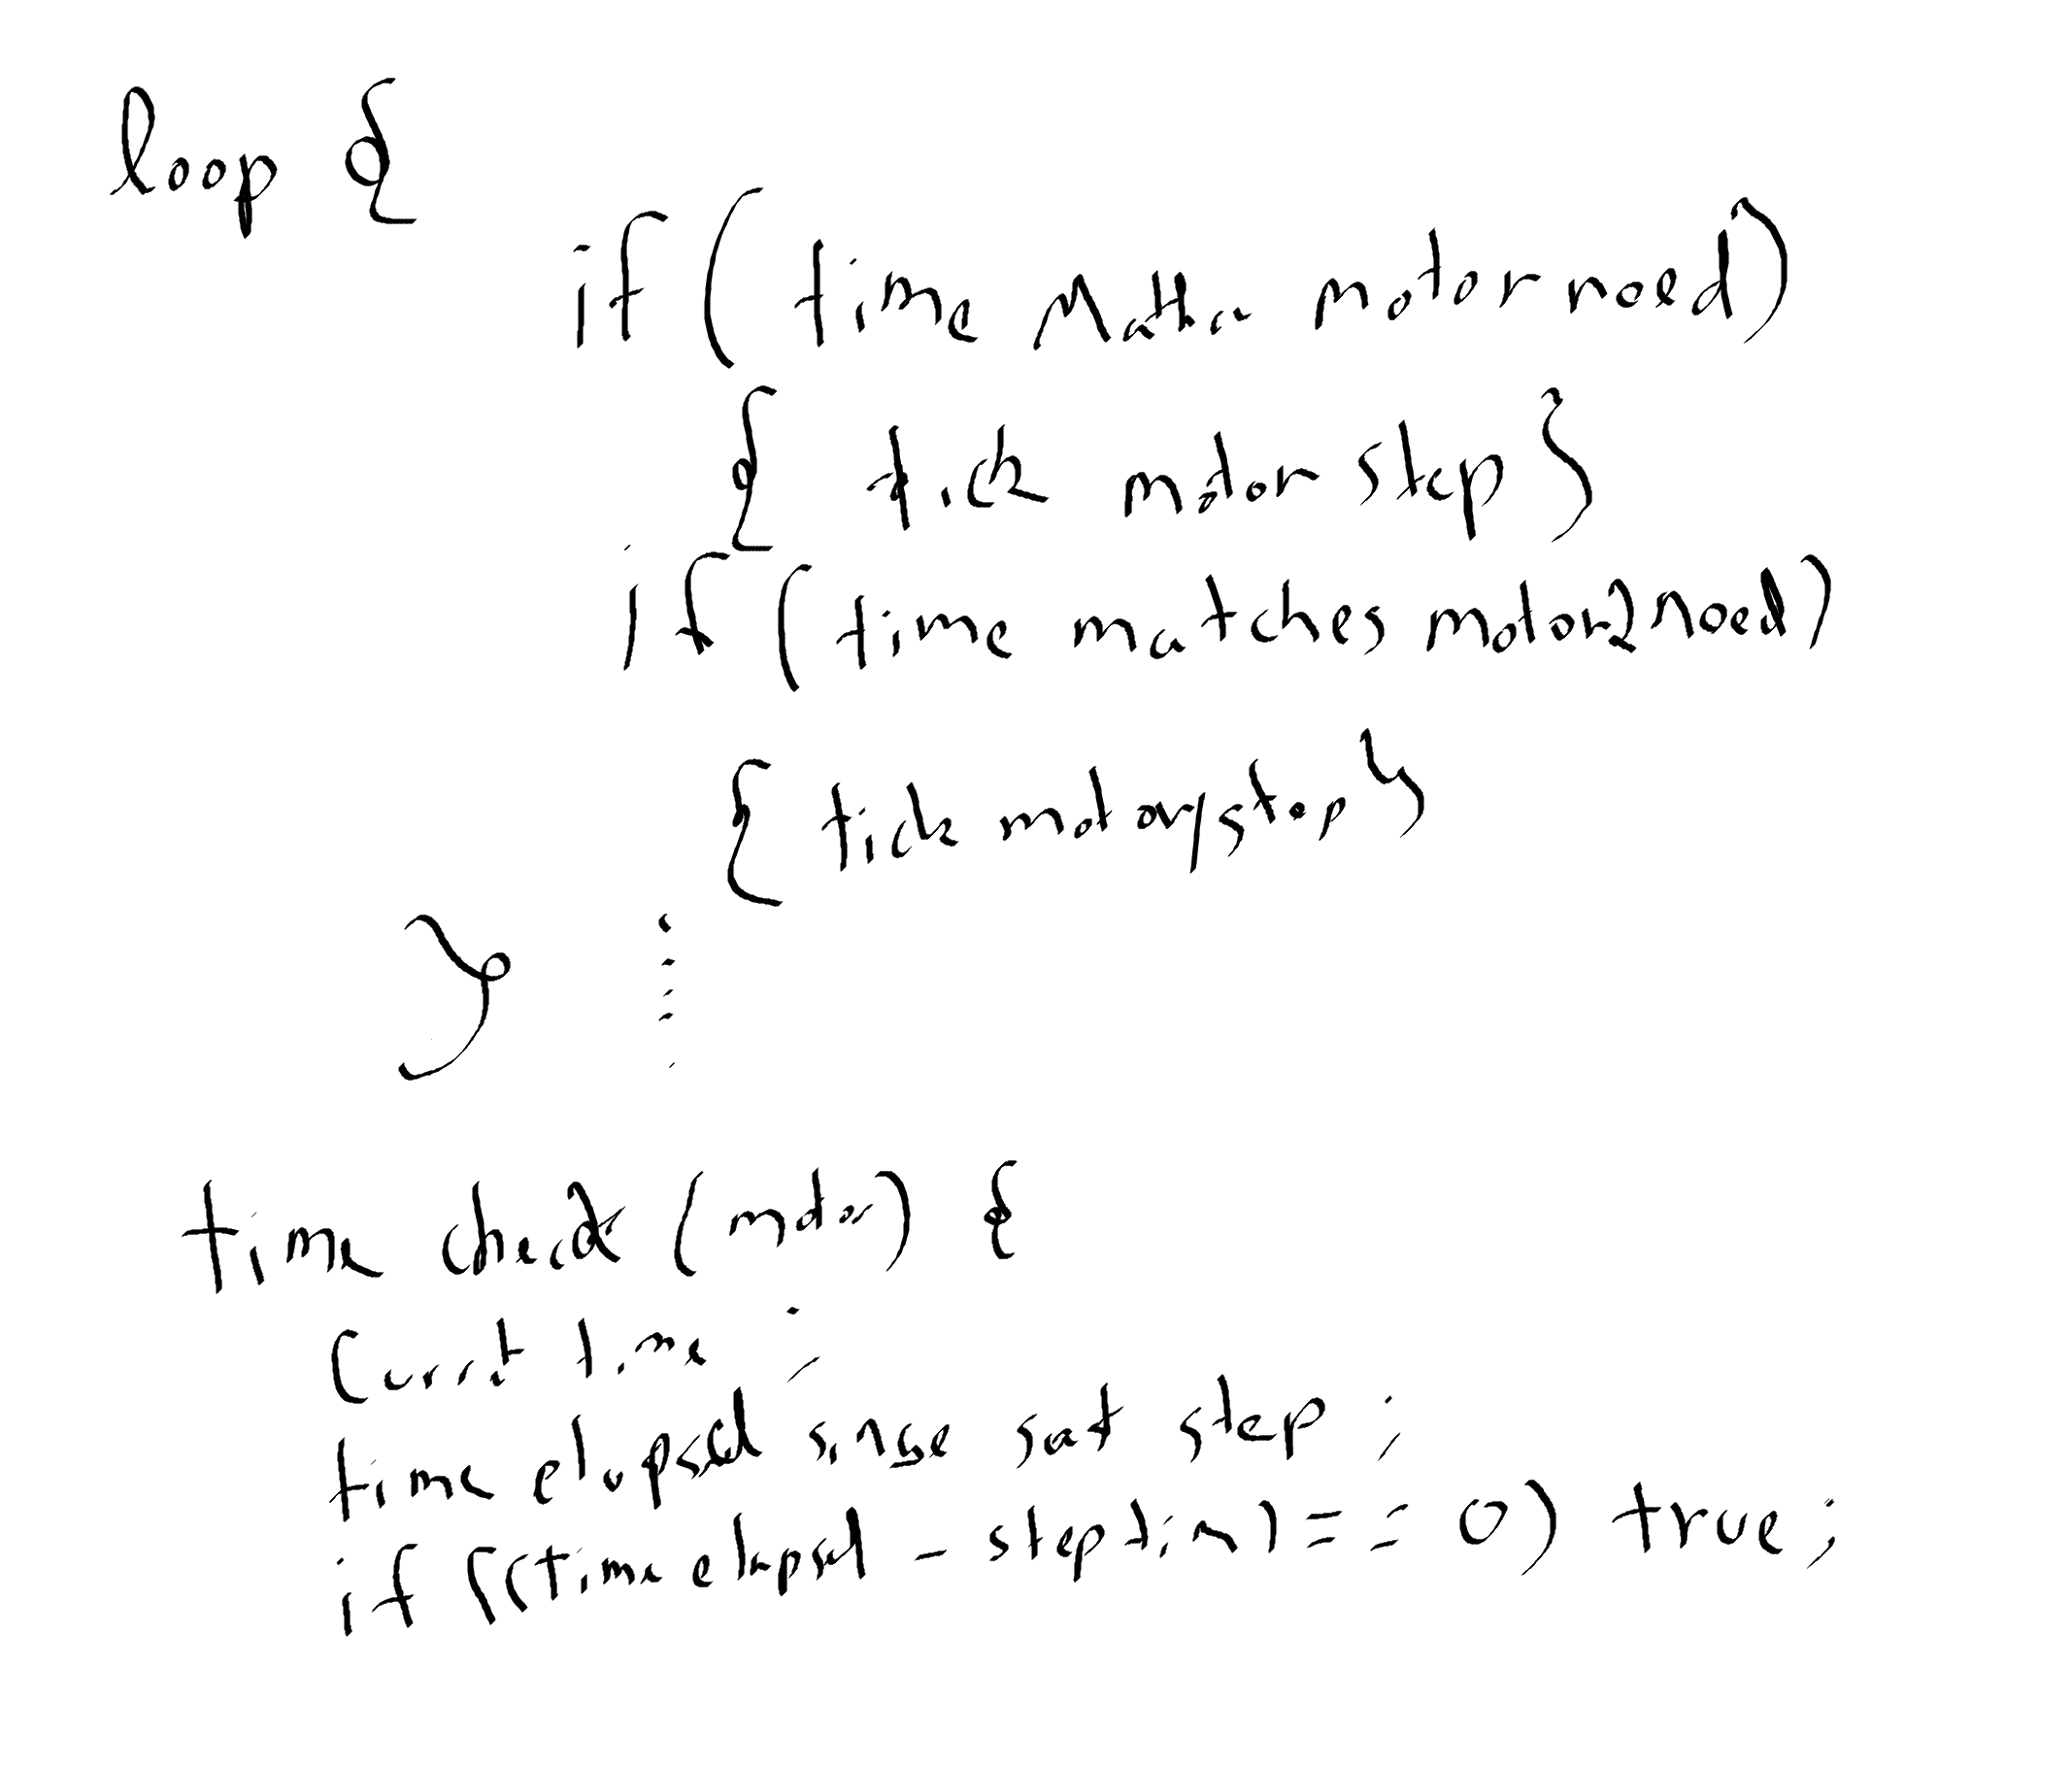 loop {
if ( time motor need)
{ tick motor step }
if ( time matches motor2 need)
{ tick motor step }
}
time check (motor) {
Current time ;
time elapsed since step ;
if ((time elapsed - step time) == 0) true ;